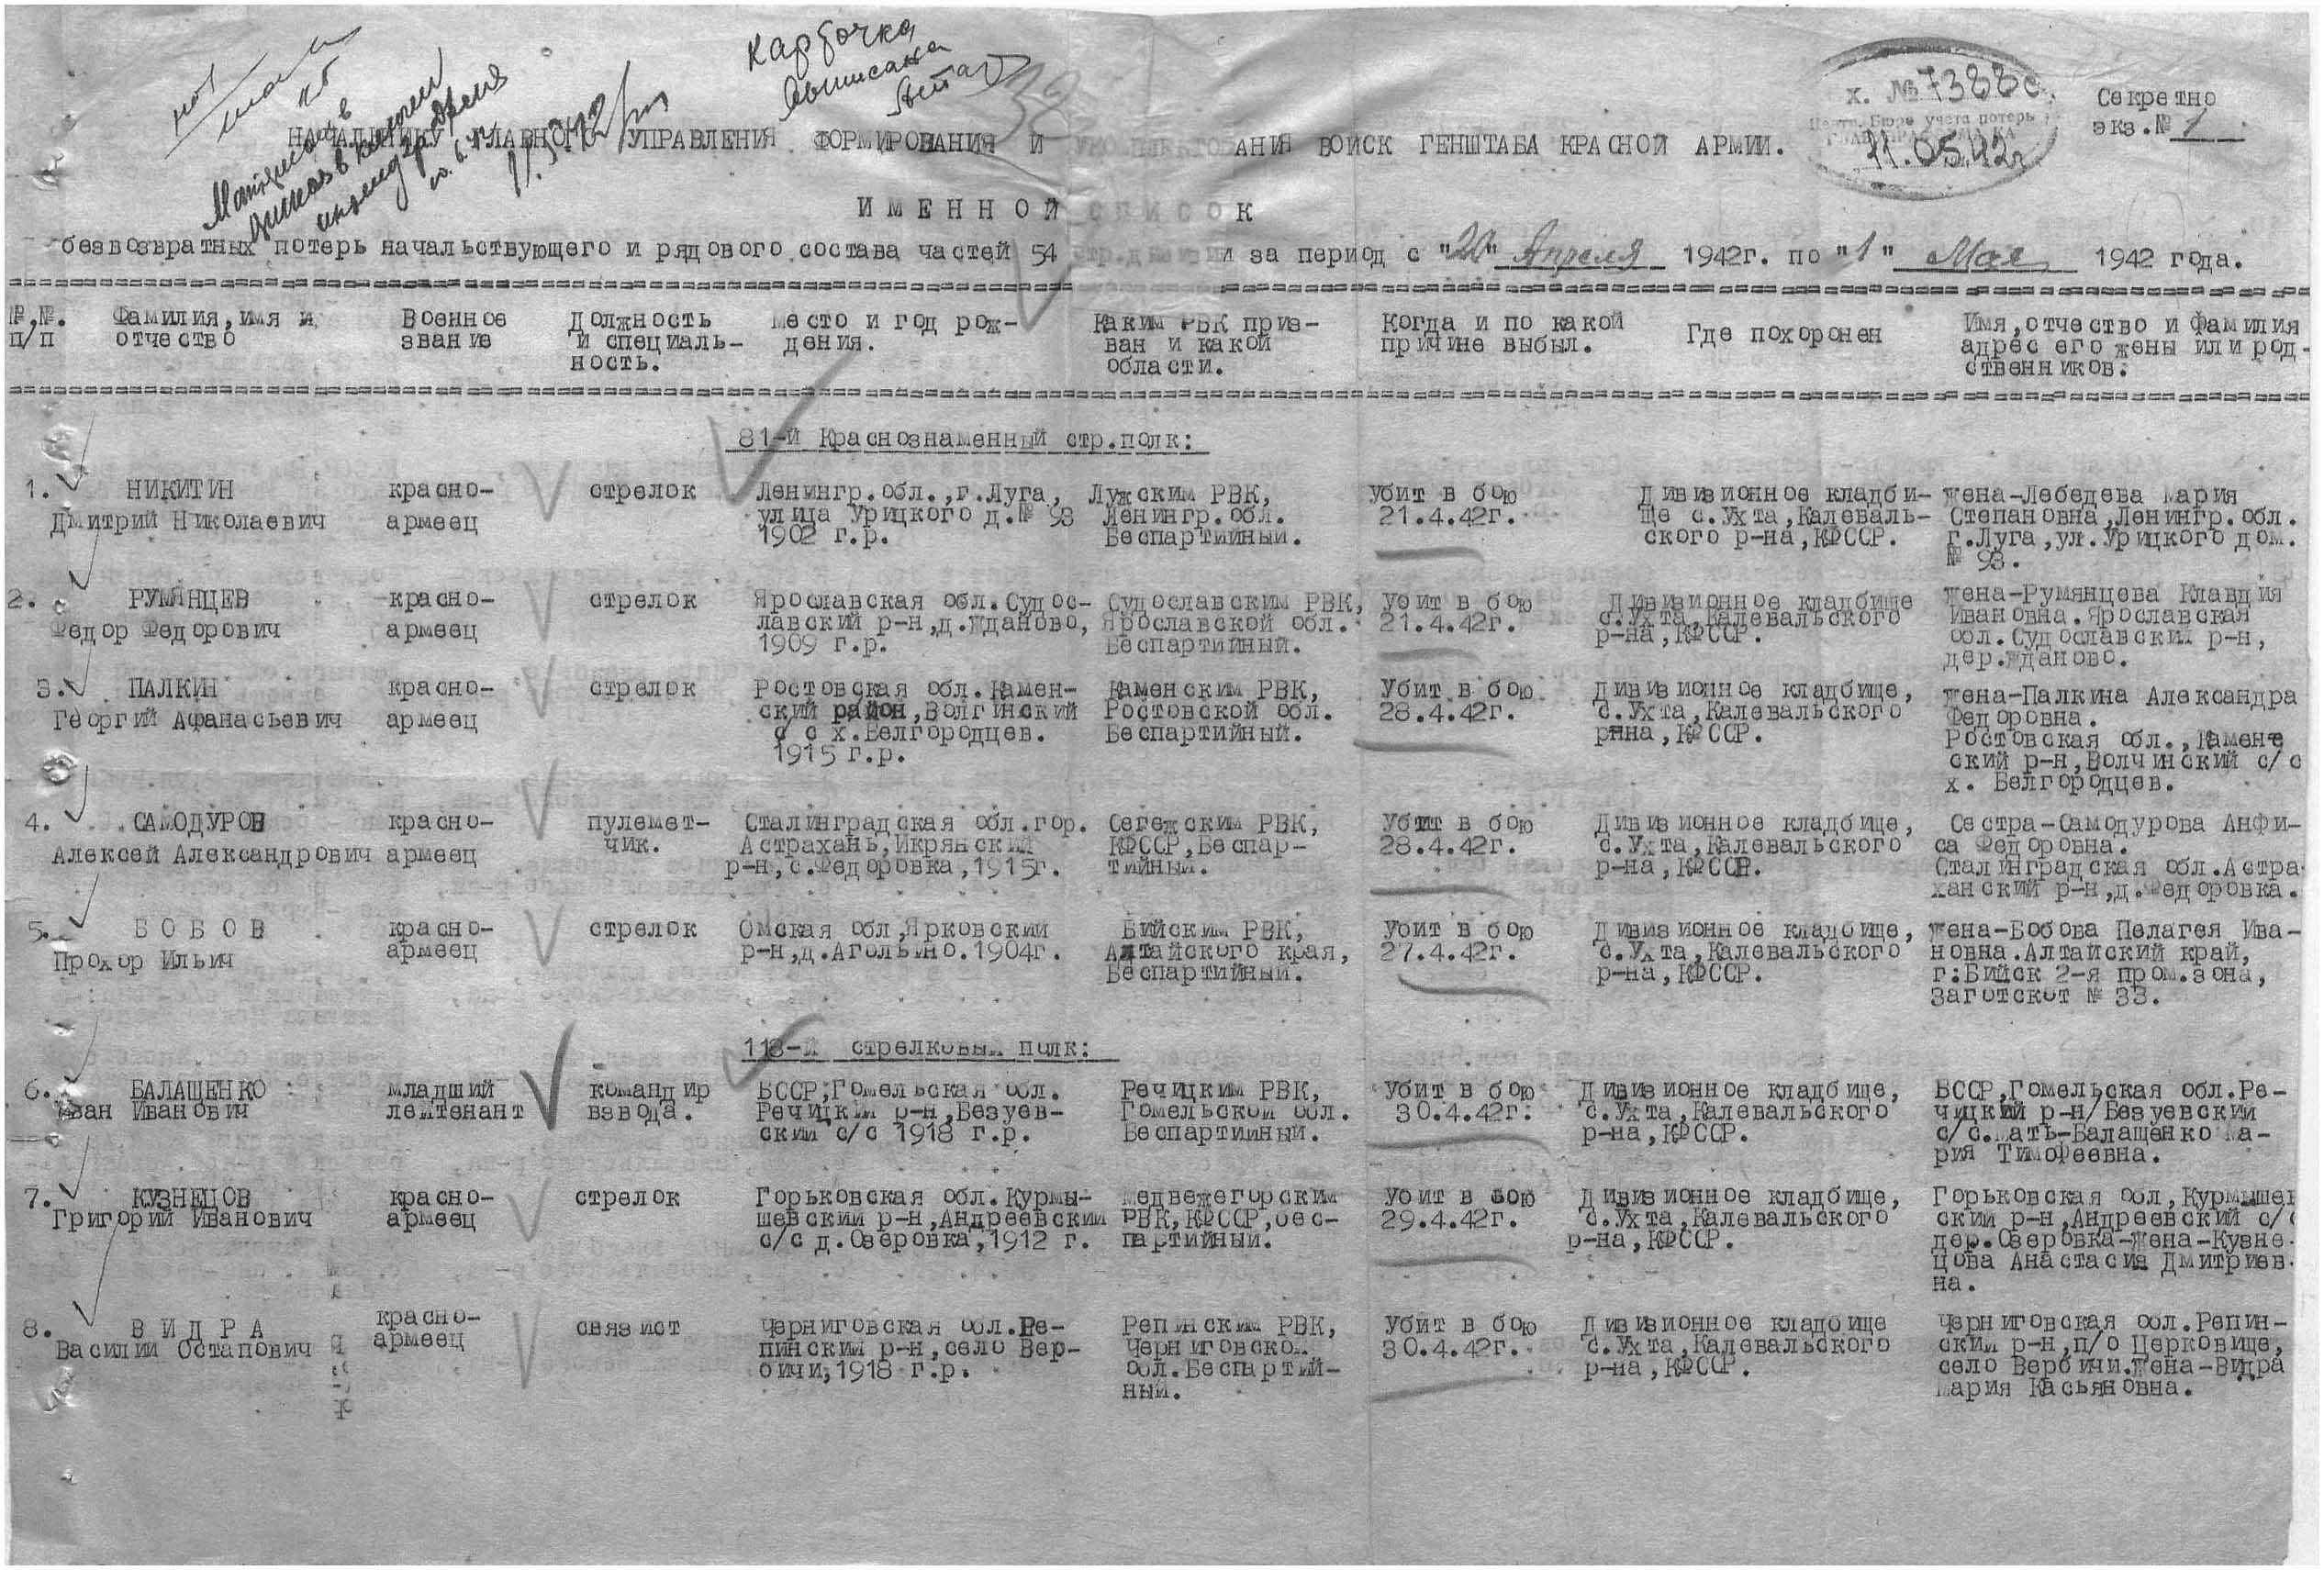 Карточка
выписана
х. № 7388с
Центр. Бюро учета потерь
11.05.42г
Секретно
экз.№ 1
НАЧАЛЬНИКУ ГЛАВНОГО УПРАВЛЕНИЯ ФОРМИРОВАНИЯ И УКОМПЛЕКТОВАНИЯ ВОЙСК ГЕНШТАБА КРАСНОЙ АРМИИ.
ИМЕННОЙ СПИСОК
безвозвратных потерь начальствующего и рядового состава частей 54 стр.дивизии за период с "20" Апреля 1942г. по "1" Мая 1942 года.
№.№. Фамилия,имя и Военное Должность Место и год рож- Каким РВК приз- Когда и по какой Где похоронен Имя,отчество и фамилия
п/п отчество звание и специаль- дения. ван и какой причине выбыл. адрес его жены или род-
ность. области. ственников.
81-й Краснознаменный стр.полк:
1. НИКИТИН красно- стрелок Ленингр.обл.,г.Луга, Лужским РВК, Убит в бою Дивизионное кладби- Жена-Лебедева Мария
Дмитрий Николаевич армеец улица Урицкого д.№ 93 Ленингр.обл. 21.4.42г. ще с.Ухта,Калеваль- Степановна,Ленингр.обл.
1902 г.р. Беспартийный. ского р-на,КФССР. г.Луга,ул.Урицкого дом.
№ 93.
2. РУМЯНЦЕВ красно- стрелок Ярославская обл.Судос- Судославским РВК, Убит в бою Дивизионное кладбище Жена-Румянцева Клавдия
Федор Федорович армеец лавский р-н,д.Жданово, Ярославской обл. 21.4.42г. с.Ухта,Калевальского Ивановна.Ярославская
1909 г.р. Беспартийный. р-на,КФССР. обл.Судославский р-н,
дер.Жданово.
3. ПАЛКИН красно- стрелок Ростовская обл.Камен- Каменским РВК, Убит в бою Дивизионное кладбище, Жена-Палкина Александра
Георгий Афанасьевич армеец ский район,Волгинский Ростовской обл. 28.4.42г. с.Ухта,Калевальского Федоровна.
с/с х.Белгородцев. Беспартийный. рнна,КФССР. Ростовская обл.,Камене
1915 г.р. ский р-н,Волчинский с/с
х. Белгородцев.
4. САМОДУРОВ красно- пулемет- Сталинградская обл.гор. Сегежским РВК, Убит в бою Дивизионное кладбище, Сестра-Самодурова Анфи-
Алексей Александрович армеец чик. Астрахань,Икрянский КФССР,Беспар- 28.4.42г. с.Ухта,Калевальского са Федоровна.
р-н,с.Федоровка,1915г. тийный. р-на,КФССР. Сталинградская обл.Астра-
ханский р-н,д.Федоровка.
5. БОБОВ красно- стрелок Омская обл,Ярковский Бийским РВК, Убит в бою Дивизионное кладбище, Жена-Бобова Пелагея Ива-
Прохор Ильич армеец р-н,д.Агольино.1904г. Алтайского края, 27.4.42г. с.Ухта,Калевальского новна.Алтайский край,
Беспартийный. р-на,КФССР. г:Бийск 2-я пром.зона,
Заготскот № 33.
118-й стрелковый полк:
6. БАЛАЩЕНКО младший командир БССР,Гомельская обл. Речицким РВК, Убит в бою Дивизионное кладбище, БССР,Гомельская обл.Ре-
Иван Иванович лейтенант взвода. Речицкий р-н,Безуев- Гомельской обл. 30.4.42г. с.Ухта,Калевальского чицкий р-н/Безуевский
ский с/с 1918 г.р. Беспартийный. р-на,КФССР. с/с.мать-Балащенко Ма-
рия Тимофеевна.
7. КУЗНЕЦОВ красно- стрелок Горьковская обл.Курмы- Медвежегорским Убит в бою Дивизионное кладбище, Горьковская обл,Курмышев
Григорий Иванович армеец шевский р-н,Андреевский РВК,КФССР,бес- 29.4.42г. с.Ухта,Калевальского ский р-н,Андреевский с/с
с/с д.Озеровка,1912 г. партийный. р-на,КФССР. дер.Озеровка-жена-Кузне-
цова Анастасия Дмитриев-
на.
8. ВИДРА красно- связист Черниговская обл.Ре- Репинским РВК, Убит в бою Дивизионное кладбище Черниговская обл.Репин-
Василий Остапович армеец пинский р-н,село Вер- Черниговской 30.4.42г. с.Ухта,Калевальского ский р-н,п/о Церковище,
бичи,1918 г.р. обл.Беспартий- р-на,КФССР. село Вербичи.Жена-Видра
ный. Мария Касьяновна.